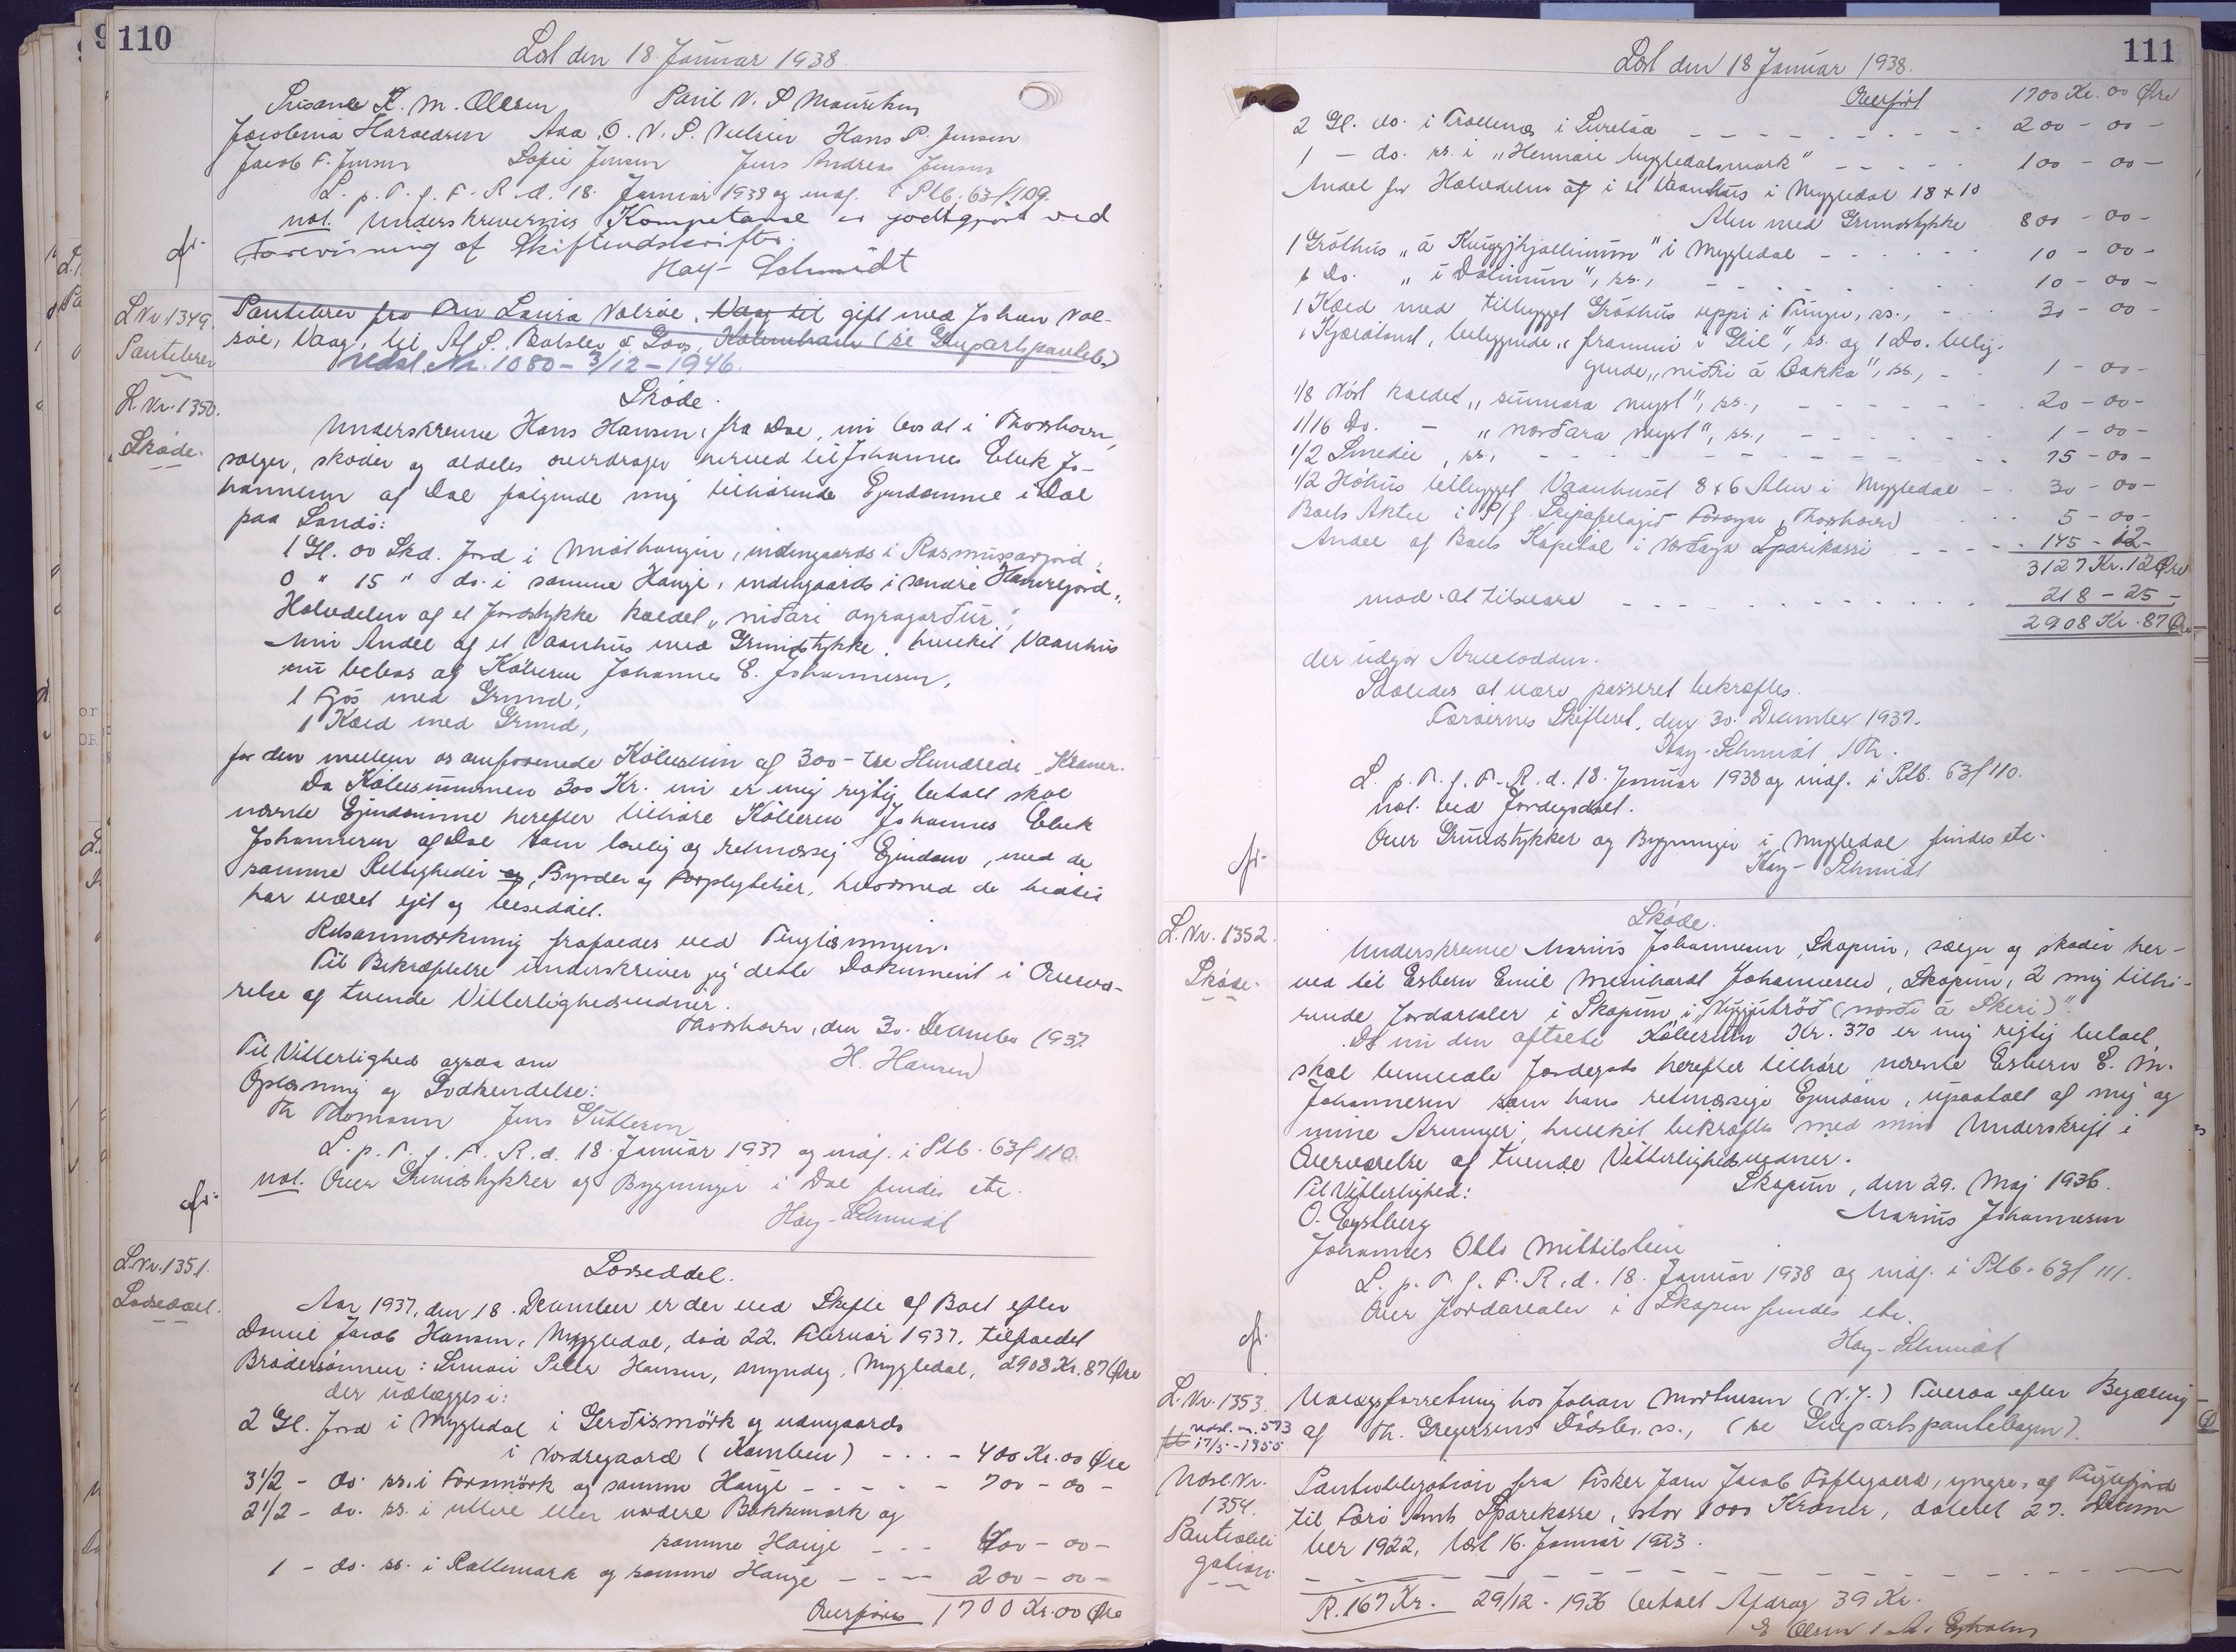 110
Læst den 18. Januar 1938.
Susanne K. M. Olesen Paul V. P. Mouritsen
Jacobina Haraldsen Aaa. O. V. P. Nielsen Hans P. Jensen
Jacob F. Jensen Sofie Jensen Jens Andreas Jensen
L. p. T. f. F. R. d. 18. Januar 1938 og indf. i Ptb. 63f109.
not. Underskrivernes Kompetance er godtgjort ved
Forevisning af Skifteudskrifter.
Hay-Schmidt
L Nr 1349.
Pantebrev
Pantebrev fra Fru Laura Valrøe, Vaag til gift med Johan Val-
røe, Vaag, til A/S. Balslev &
Udsl. Nr. 1080 - 3/12 - 1946.
L. Nr. 1350.
Skøde.
Skøde.
Underskrevne Hans Hansen, fra Dal, nu bosat i Thorshavn,
sælger, skøder og aldeles overdrager herved til Johannes Eliek Jo-
hannesen af Dal følgende mig tilhørende Ejendomme i Dal
paa Sandø:
1 Gl. 00 Skd. Jord i Midthaugen, indengaards i Rasmusargjord,
0 " 15 " do. i samme Hauge, indengaards i søndre Hamregjord,
Halvdelen af et Jordstykke kaldet "niðari oyragarður",
Min Andel af et Vaanhus med Grundstykke, hvilket Vaanhus
nu bebos af Køberen Johannes E. Johannesen,
1 Fjós med Grund,
1 Kæld med Grund,
for den mellem os omforenede Købesum af 300 - tre Hundrede - Kroner.
Da Købesummen 300 Kr. nu er mig rigtig betalt skal
nævnte Ejendomme herefter tilhøre Køberen Johannes Eliek
Johannesen af Dal som lovlig og retmæssig Ejendom, med de
samme Rettigheder og, Byrder og Forpligtelser, hvormed de hidtil
har været ejet og besiddet.
Retsanmærkning frafaldes ved Tinglæsningen.
Til Bekræftelse underskriver jeg dette Dokument i Overvæ-
relse af tvende Vitterlighedsvidner.
Thorshavn, den 30. December 1937.
Til Vitterlighed ogsaa om H. Hansen
Oplæsning og Godkendelse:
Th Thomsen Jens Guttesen
L. p. T. f. F. R. d. 18. Januar 1937 og indf. i Ptb. 63f 110.
not. Over Grundstykker og Bygninger i Dal findes etc.
Hay-Schmidt
L. Nr. 1351.
Lodseddel.
Lodseddel.
Aar 1937, den 18. December er der ved Skifte af Boet efter
Daniel Jacob Hansen, Mygledal, død 22. Februar 1937, tilfaldet
Brodersønnen: Simon Peter Hansen, myndig, Mygledal, 2908 Kr. 87 Øre
der udlægges i:
2 Gl. Jord i Mygledal i Gerðismörk og udengaards
i Nordregaard (Kamben) - - - 400 Kr. 00 Øre
3 1/2 - do. ss. i Formörk og samme Hauge - - - - - 700 - 00 -
2 1/2 - do. ss. i yttere eller nordere Bakkemark og
samme Hauge - - - 400 - 00 -
1 - do. ss. i Rættemark og samme Hauge - - - - 200 - 00 -
Overføres 1700 Kr. 00 Øre
111
Læst den 18 Januar 1938.
Overført 1700 Kr. 00 Øre
2 Gl. do. i Trøllenæs i - - - - - 200 - 00 -
1 - do. ss. i "Hennari Mygledalsmark" - - - - - 100 - 00 -
Andel for Halvdelen af i et Vaanhus i Mygledal 18 x 10
Alen med Grundstykke 800 - 00 -
1 Gróthus " á " i Mygledal - - - - - 10 - 00 -
1 Do. " í Dalinum", ss., - - - - - 10 - 00 -
1 Kæld med tilbygget Gróthus uppi i Túnga, ss., - - 30 - 00 -
1 Kjeratoud, beliggende "frammi í Geil", ss. og 1 Do. belig-
gende "niðri á Bakka", ss., - 1 - 00 -
1/8 Nóst kaldet "sunnara neyst", ss., - - - - - 20 - 00 -
1/16 Do. - "norðara neyst", ss., - - - - - 1 - 00 -
1/2 Smedie, ss., - - - - - 15 - 00 -
1/2 Höhus tilbygget Vaanhuset 8 x 6 Alen i Mygledal - 30 - 00 -
Boets Aktie i P/f. Skipafelagið Føroyar, Thorshavn - 5 - 00 -
Andel af Boets Kapital i Norðoya Sparikassi - - - - 145 - 12 -
3127 Kr. 12 Øre
mod at tilsvare - - - - - 218 - 25 -
2908 Kr. 87 Øre
der udgør Arvelodden.
Saaledes at være passeret bekræftes.
Færøernes Skifteret, den 30. December 1937.
Hay-Schmidt /Th.
L. p. T. f. F. R. d. 18. Januar 1938 og indf. i Ptb. 63f 110.
not. ved Jordegodset.
Over Grundstykker og Bygninger i Mygledal findes etc.
Hay-Schmidt
L. Nr. 1352.
Skøde.
Skøde.
Underskrevne Marius Johannesen, Skopun, sælger og skøder her-
ved til Esbern Emil Meinhardt Johannesen, Skopun, 2 mig tilhø-
rende Jordarealer i Skopun, i (norði á Skeri)".
Da nu den aftalte Købesum Kr. 370 er mig rigtig betalt,
skal benævnte Jordegods herefter tilhøre nævnte Esbern E. M.
Johannesen som hans retmæssige Ejendom, upaatalt af mig og
mine Arvinger, hvilket bekræftes med min Underskrift i
Overværelse af tvende Vitterlighedsvidner.
Til Vitterlighed: Skopun, den 29. Maj 1936.
O. Eystberg Marius Johannesen
Johannes Otto Mittilstein
L. p. T. f. F. R. d. 18. Januar 1938 og indf. i Ptb. 63f 111.
Over Jordarealer i Skopun findes etc.
Hay-Schmidt
L. Nr. 1353.
Udsl. nr. 573
17/5 - 1955
Udlægsforretning hos Johan Mortensen (V. J.) Tveraa efter Begæring
af Th. Gregersens Dødsbo, ss., (se Genpartspantebogen).
Udsl. Nr.
1354.
Pantobli
gation
Pantobligation fra Fisker Jam Jacob Toftegaard, yngre, af Fuglefjord
til Færø Amts Sparekasse, stor 1000 Kroner, dateret 27. Decem
ber 1922, læst 16. Januar 1923.
R. 167 Kr. 29/12 - 1936 betalt Afdrag 39 Kr.
E Olsen / A.